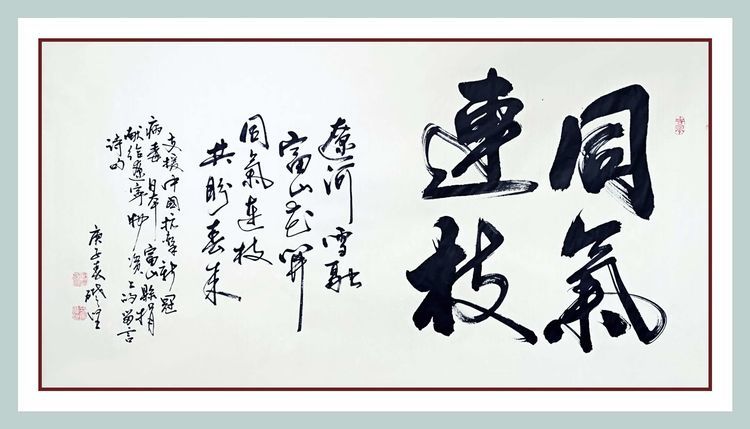 同氣
連枝
遼河雪融
富山花開
同氣連枝
共盼春来
支援中國抗擊新冠
病毒日本富山縣捐
献给遼寧物资上的留言
詩句
庚子春